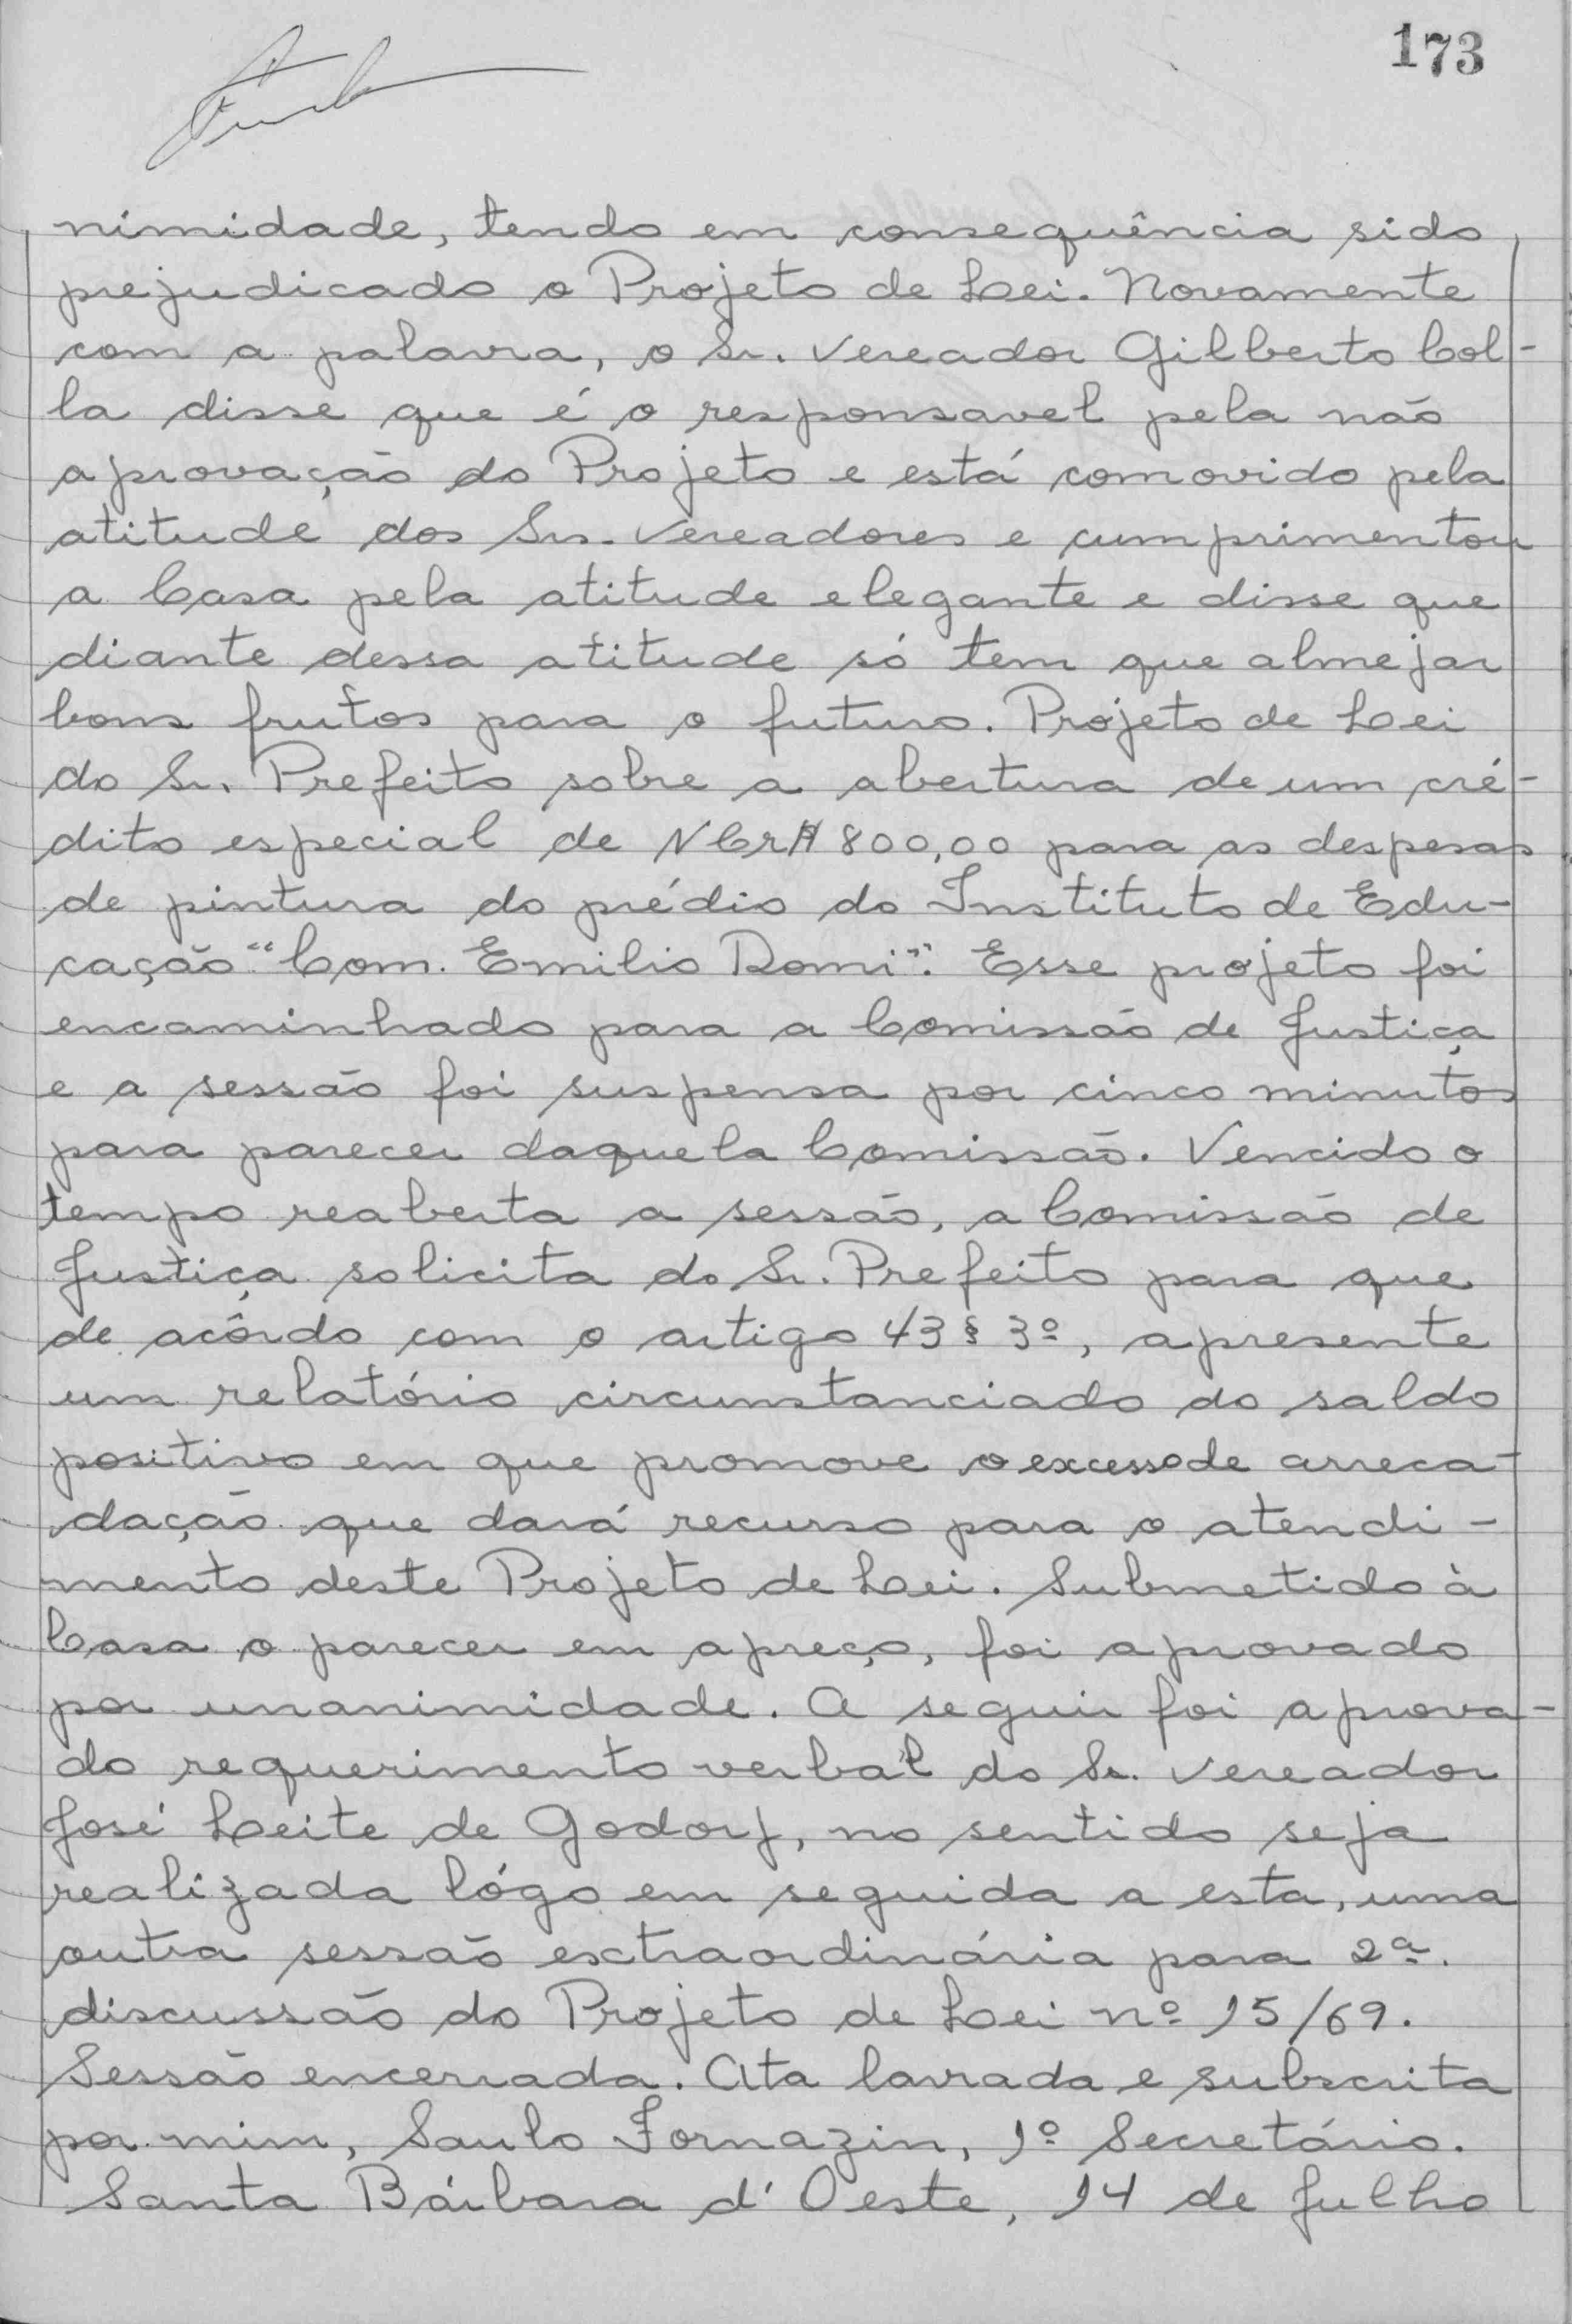 173
nimidade, tendo em consequência sido
prejudicado o Projeto de Lei. Novamente
com a palavra, o Sr. Vereador Gilberto Col-
la disse que é o responsavel pela não
aprovação do Projeto e está comovido pela
atitude dos Srs. Vereadores e cumprimentou
a Casa pela atitude elegante e disse que
diante dessa atitude só tem que almejar
bons frutos para o futuro. Projeto de Lei
do Sr. Prefeito sobre a abertura de um cré-
dito especial de NCr$ 800,00 para as despesas
de pintura do prédio do Instituto de Edu-
cação "Com. Emilio Romi". Esse projeto foi
encaminhado para a Comissão de Justiça
e a sessão foi suspensa por cinco minutos
para parecer daquela Comissão. Vencido o
tempo reaberta a sessão, a Comissão de
Justiça solicita do Sr. Prefeito para que
de acôrdo com o artigo 43 § 3º, apresente
um relatório circunstanciado do saldo
positivo em que promove o excesso de arreca-
dação que dará recurso para o atendi-
mento deste Projeto de Lei. Submetido à
Casa o parecer em apreço, foi aprovado
por unanimidade. A seguir foi aprova-
do requerimento verbal do Sr. Vereador
José Leite de Godoy, no sentido seja
realizada lógo em seguida a esta, uma
outra sessão extraordinária para 2ª.
discussão do Projeto de Lei nº 15/69.
Sessão encerrada. Ata lavrada e subscrita
por mim, Saulo Fornazin, 1º Secretário.
Santa Bárbara d'Oeste, 14 de Julho